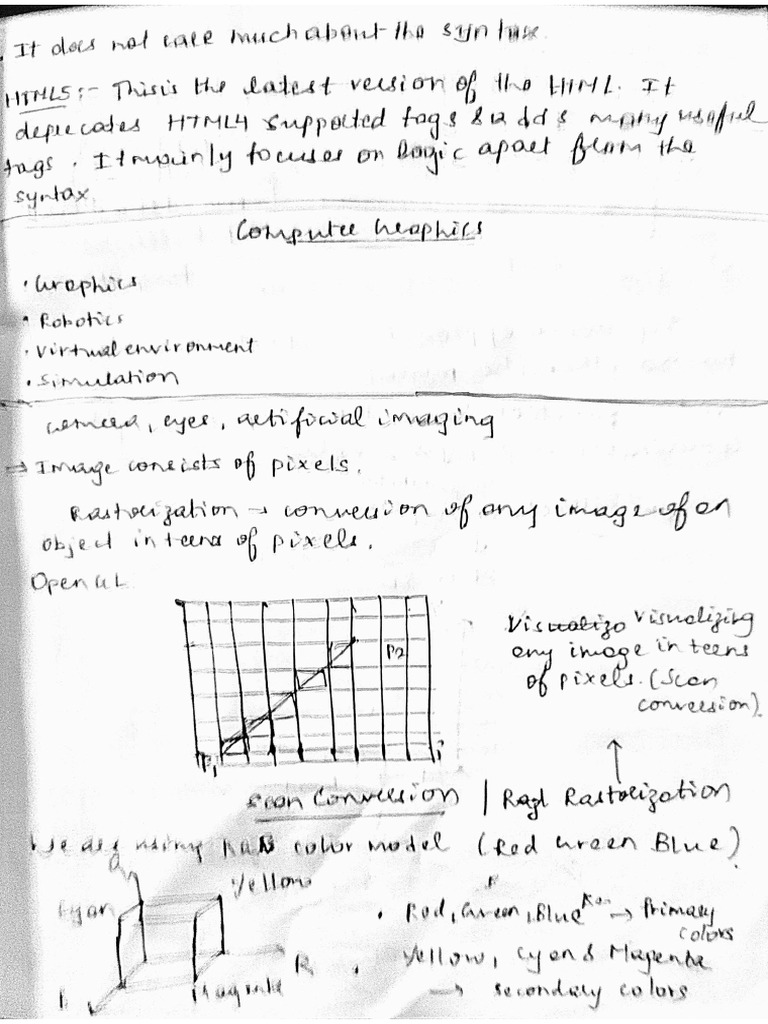 . It does not care much about the syntax.
HTML5 :- This is the latest version of the HTML. It
depriecates HTML4 supported tags & adds many useful
tags. It mainly focuses on logic apart from the
syntax
Computer Graphics
• Graphics
• Robotics
• Virtual environment
• Simulation
camera, eyes, artificial imaging
⇒ Image consists of pixels.
Rastorization → conversion of any image of an
object in terms of pixels.
OpenGL
Visualizo Visualizing
any image in terms
of pixels. (Scan
conversion).
P2
P1
Scan Conversion / Rast Rastorization
We are using RGB color model (Red Green Blue)
G
Yellow
Cyan
• Red, Green, Blue → Primary
colors
R
• Yellow, Cyan & Magenta
B
Magenta
→ secondary colors